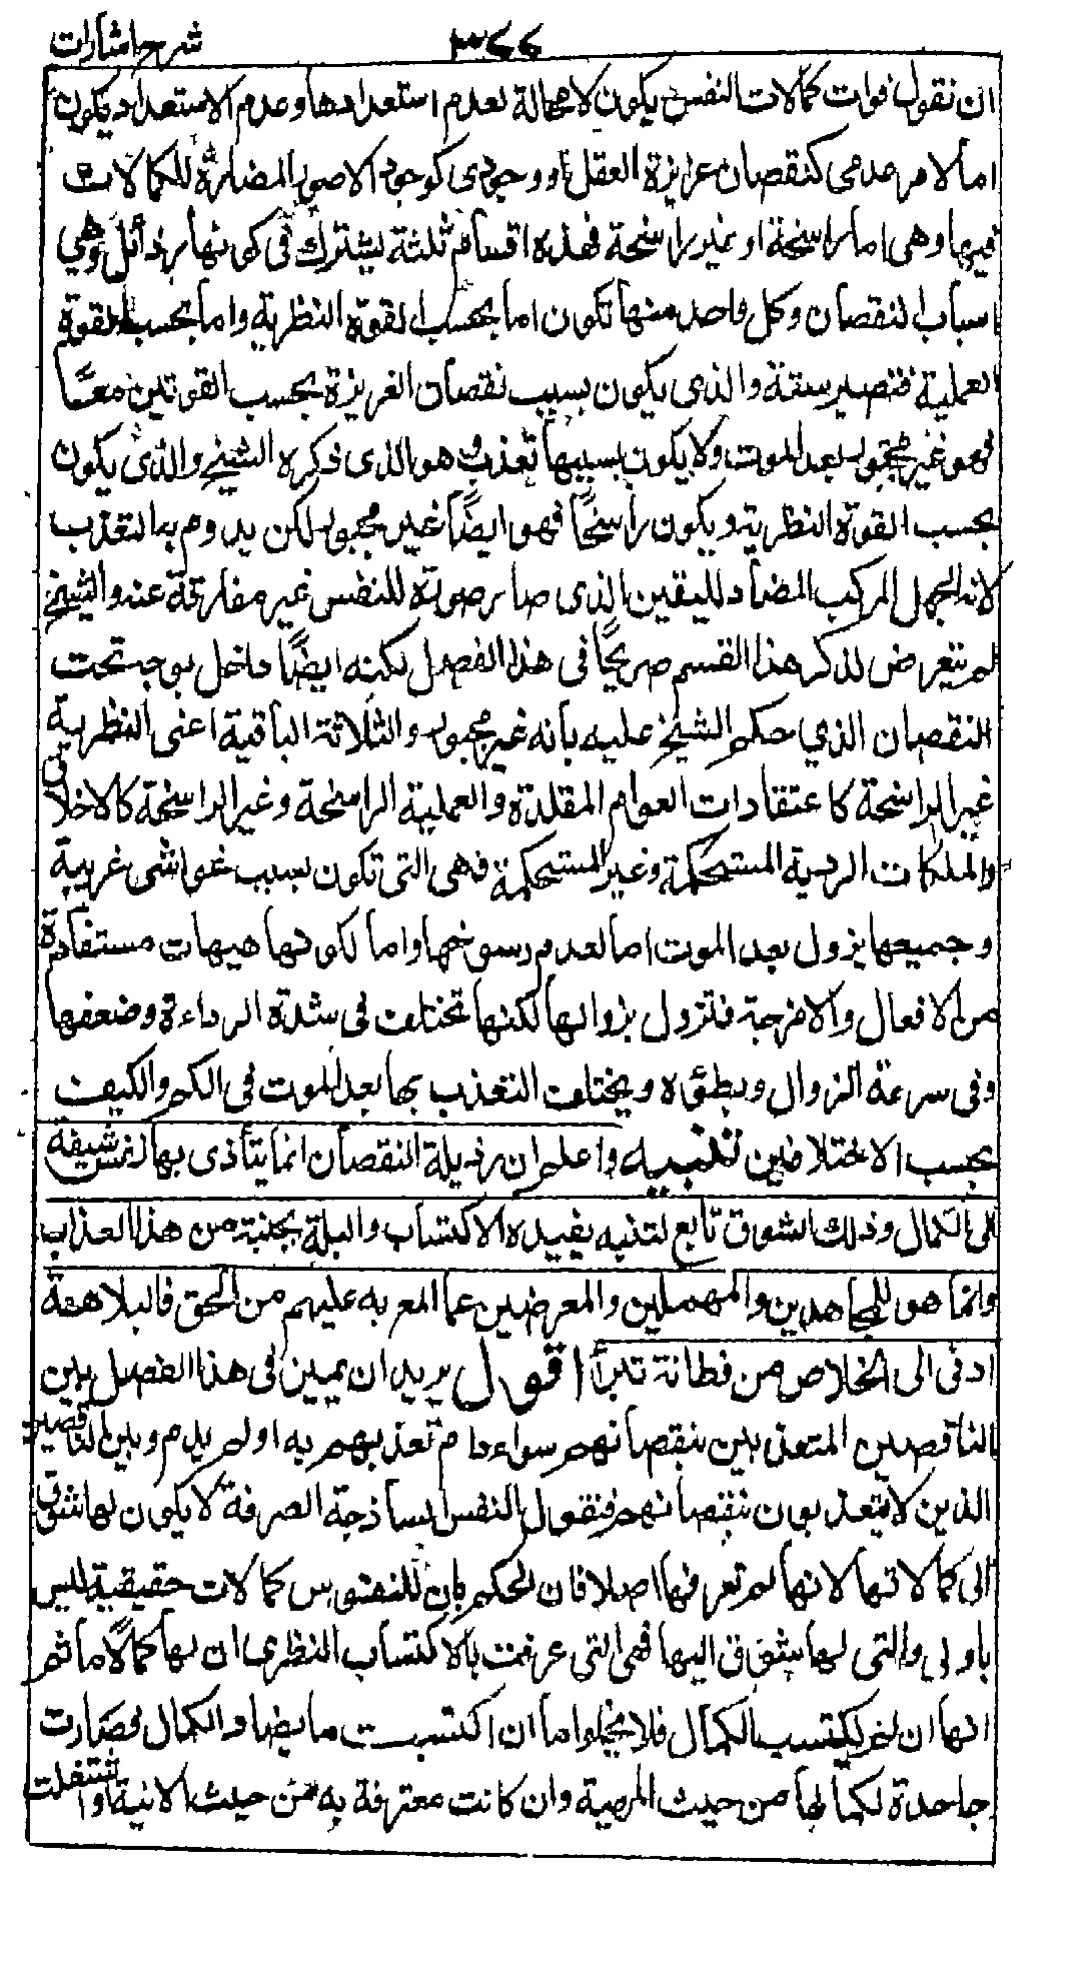 شرح اشارات
٣٤٤
ان نقول فوات كمالات النفس يكون لا محالة لعدم استعدادها وعدم الاستعداد يكون
اما لامر عدمى كنقصان غريزة العقل او وجودى كوجود الامور المضادة للكمالات
فيها وهى اما راسخة او غير راسخة فهذه اقسام ثلثة يشترك فى كونها رذائل وهي
اسباب النقصان وكل واحد منها تكون اما بحسب القوة النظرية واما بحسب القوة
العملية فتصير ستة والذى يكون بسبب نقصان الغريزة بحسب القوتين معًا
فهو غير مجبور بعد الموت ولا يكون بسببها تعذب وهو الذى ذكره الشيخ والذى يكون
بحسب القوة النظرية ويكون راسخًا فهو ايضًا غير مجبور لكن يدوم به التعذب
لانه الجهل المركب المضاد لليقين الذى صار صورة للنفس غير مفارقة عنه والشيخ
لم يتعرض لذكر هذا القسم صريحًا فى هذا الفصل لكنه ايضًا داخل بوجه تحت
النقصان الذي حكم الشيخ عليه بانه غير مجبور والثلاثة الباقية اعنى النظرية
غير الراسخة كاعتقادات العوام المقلدة والعملية الراسخة وغير الراسخة كالاخلاق
والملكات الردية المستحكمة وغير المستحكمة فهى التى تكون بسبب غواشى غريبة
وجميعها يزول بعد الموت اما لعدم رسوخها واما لكونها هيهات مستفادة
من الافعال والامزجة فتزول بزوالها لكنها تختلف فى شدة الرداءة وضعفها
وفى سرعة الزوال وبطئه ويختلف التعذب بها بعد الموت فى الكم والكيف
بحسب الاختلافين تنبيه واعلم ان رذيلة النقصان انما يتأذى بها نفس شيقة
الى الكمال وذلك الشوق تابع لتنبه يفيده الاكتساب والبله بجنبة من هذا العذاب
وانما هو للجاهدين والمهملين والمعرضين عما المع به عليهم من الحق فالبلاهة
ادنى الى الخلاص من فطانة تبرأ اقول يريد ان يميز فى هذا الفصل بين
الناقصين المتعذبين بنقصانهم سواء دام تعذبهم به او لم يدم وبين الناقصين
الذين لا يتعذبون بنقصانهم فنقول النفس الساذجة الصرفة لا يكون لها شوق
الى كمالاتها لانها لم تعرفها اصلا فان الحكم بان للنفوس كمالات حقيقية ليس
باولى والتى لها شوق اليها فهى التى عرفت بالاكتساب النظرى ان لها كمالًا ما ثم
انها ان لم يكتسب الكمال فلا يخلو اما ان اكتسبت ما يضاد الكمال فصارت
جاحدة لكمالها من حيث المهية وان كانت معترفة به من حيث الانية او اشتغلت